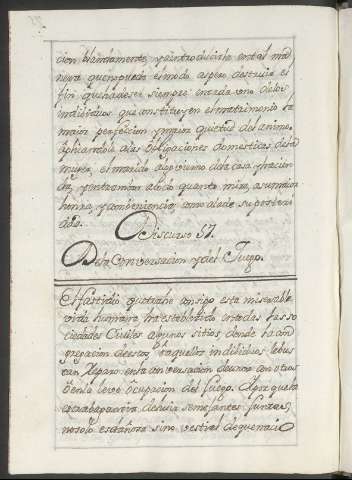 cion blandamente, y introducirla en tal ma
nera que no pueda el modo aspero destruir el
fin que ha de ser siempre en cada uno de los
individuos que constituyen el matrimonio la
maior perfeccion, y maior quietud del animo,
aplicandola a las obligaciones domesticas de la
muger, el marido al govierno de la casa, y hacien
da, y entrambos a todo quanto mira, a su maior
honra, y combeniencia, como a la de su posteri
dad.
Discurso 57.
De la Conversacion y del Juego.
El fastidio que trahe consigo esta miserable
vida humana ha establecido en todas las so
ciedades Civiles algunos sitios, donde la con
gregacion de estos, y aquellos individuos le bus
can reparo en la conversacion de unos con otros
o en la leve ocupacion del Juego. El por que ha
semejantes Juntas,
no solo es dañosa sino